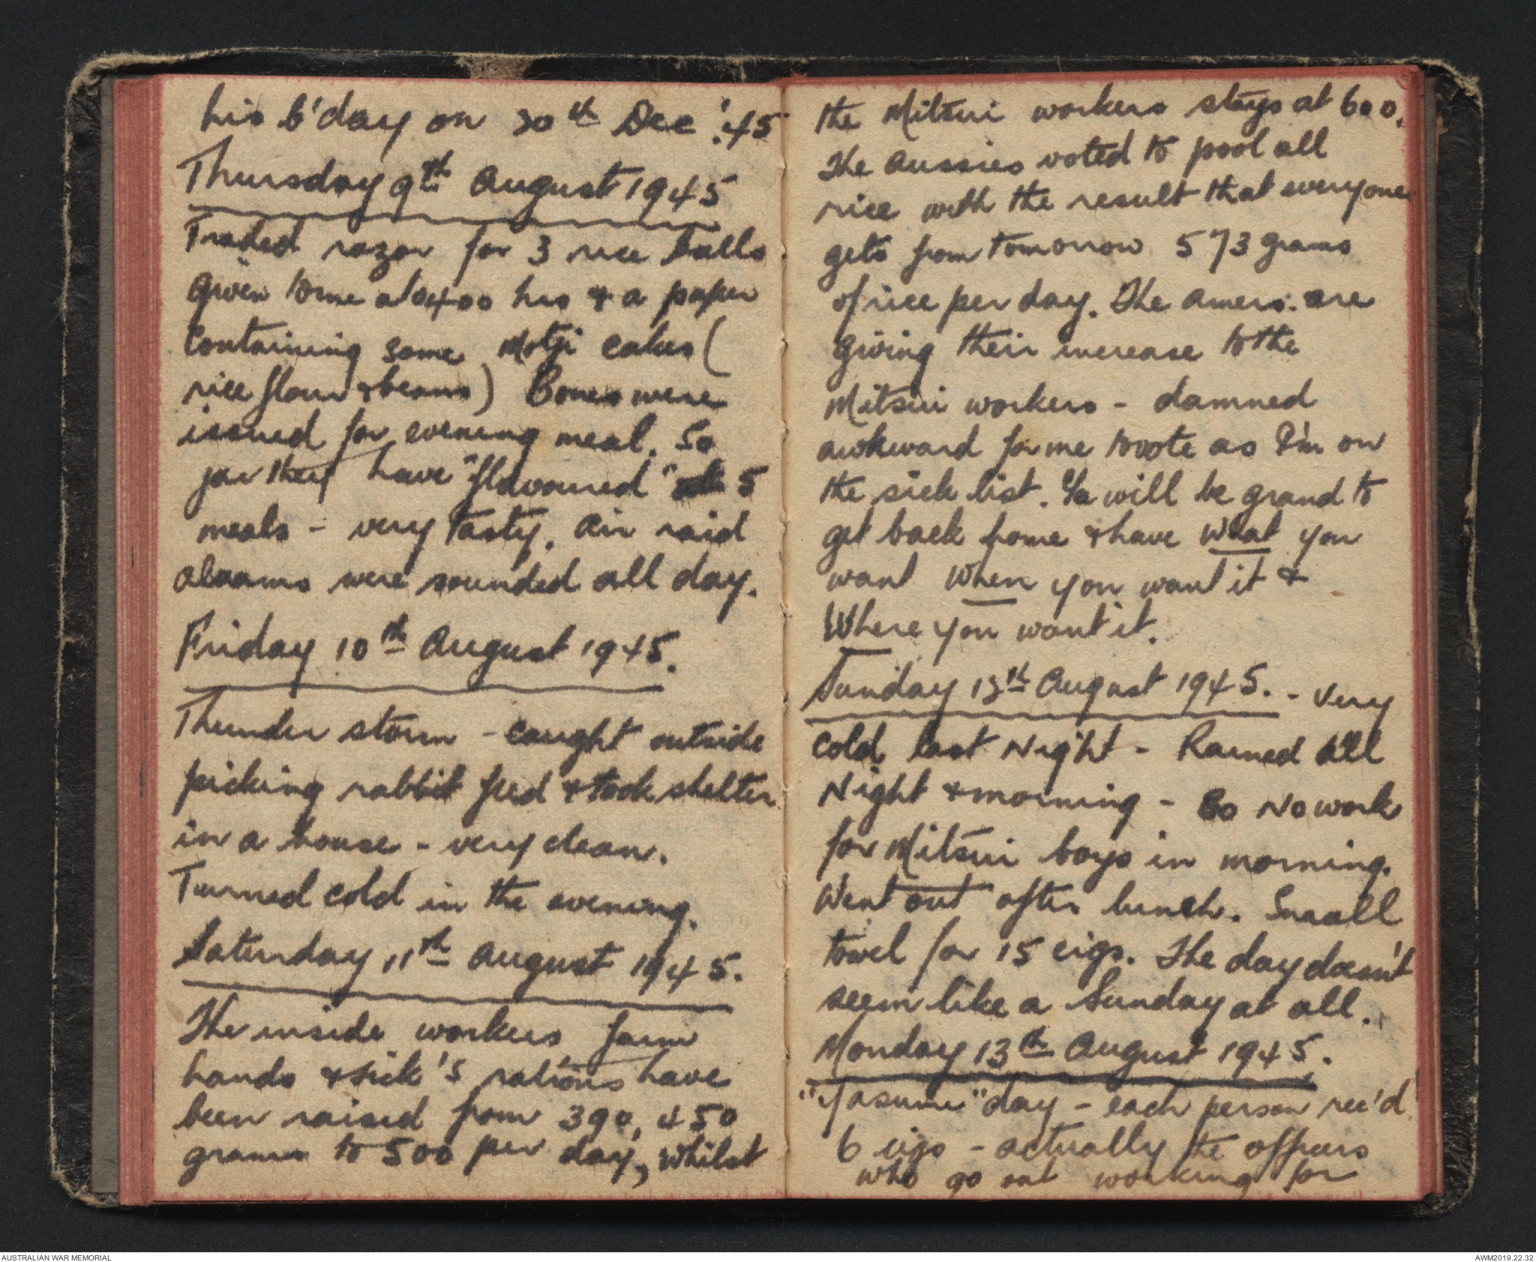 his b'day on 30th Dec '.45
Thursday 9th August 1945
Traded razor for 3 rice balls
given to me at 0400 hrs & a paper
containing some Motji cakes (
rice flour & beans) Bones were
issued for evening meal. So
far they have "flavoured" 5
meals - very tasty. Air raid
alaams were sounded all day.
Friday 10th August 1945.
Thunder storm - caught outside
picking rabbit feed & took shelter
in a house - very clean.
Turned cold in the evening.
Saturday 11th August 1945.
The inside workers farm
hands & sick's rations have
been raised from 390, 450
grams to 500 per day, whilst
the Mitsui workers stays at 600.
The Aussies voted to pool all
rice with the result that everyone
gets from tomorrow 573 grams
of rice per day. The Amers. are
giving their increase to the
Mitsui workers - damned
awkward for me to vote as I'm on
the sick list. 'Ta will be grand to
get back home & have what you
want when you want it &
Where you want it.
Sunday 12th August 1945. - Very
cold last Night - Rained All
Night & morning - So No work
for Mitsui boys in morning.
Went out after lunch. Small
towel for 15 cigs. The day doesn't
seem like a Sunday at all.
Monday 13th August 1945.
"Yasume" day - each person rec'd
6 cigs - actually the officers
who go out working for
AUSTRALIAN WAR MEMORIAL
AWM2019.22.32